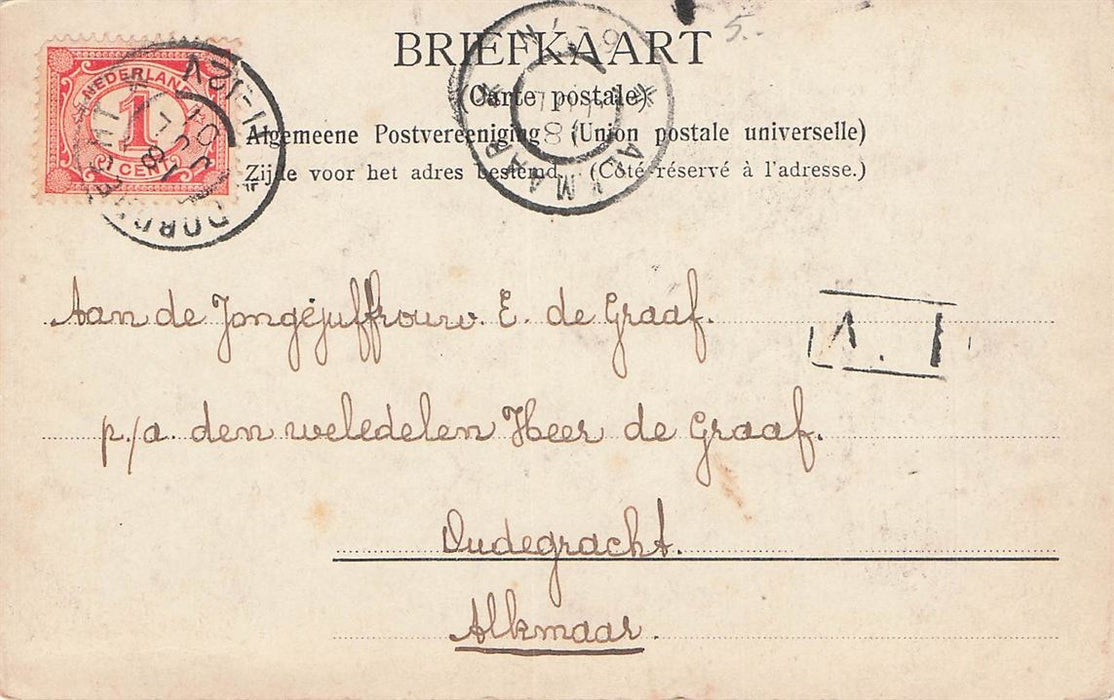 5.-
BRIEFKAART
(Carte postale)
Algemeene Postvereeniging (Union postale universelle)
Zijde voor het adres bestemd. (Côté réservé à l'adresse.)
NEDERLAND
1
CENT
ALKMAAR
Aan de Jongejuffrouw. E. de Graaf.
p./a. den weledelen Heer de Graaf.
Oudegracht.
Alkmaar.